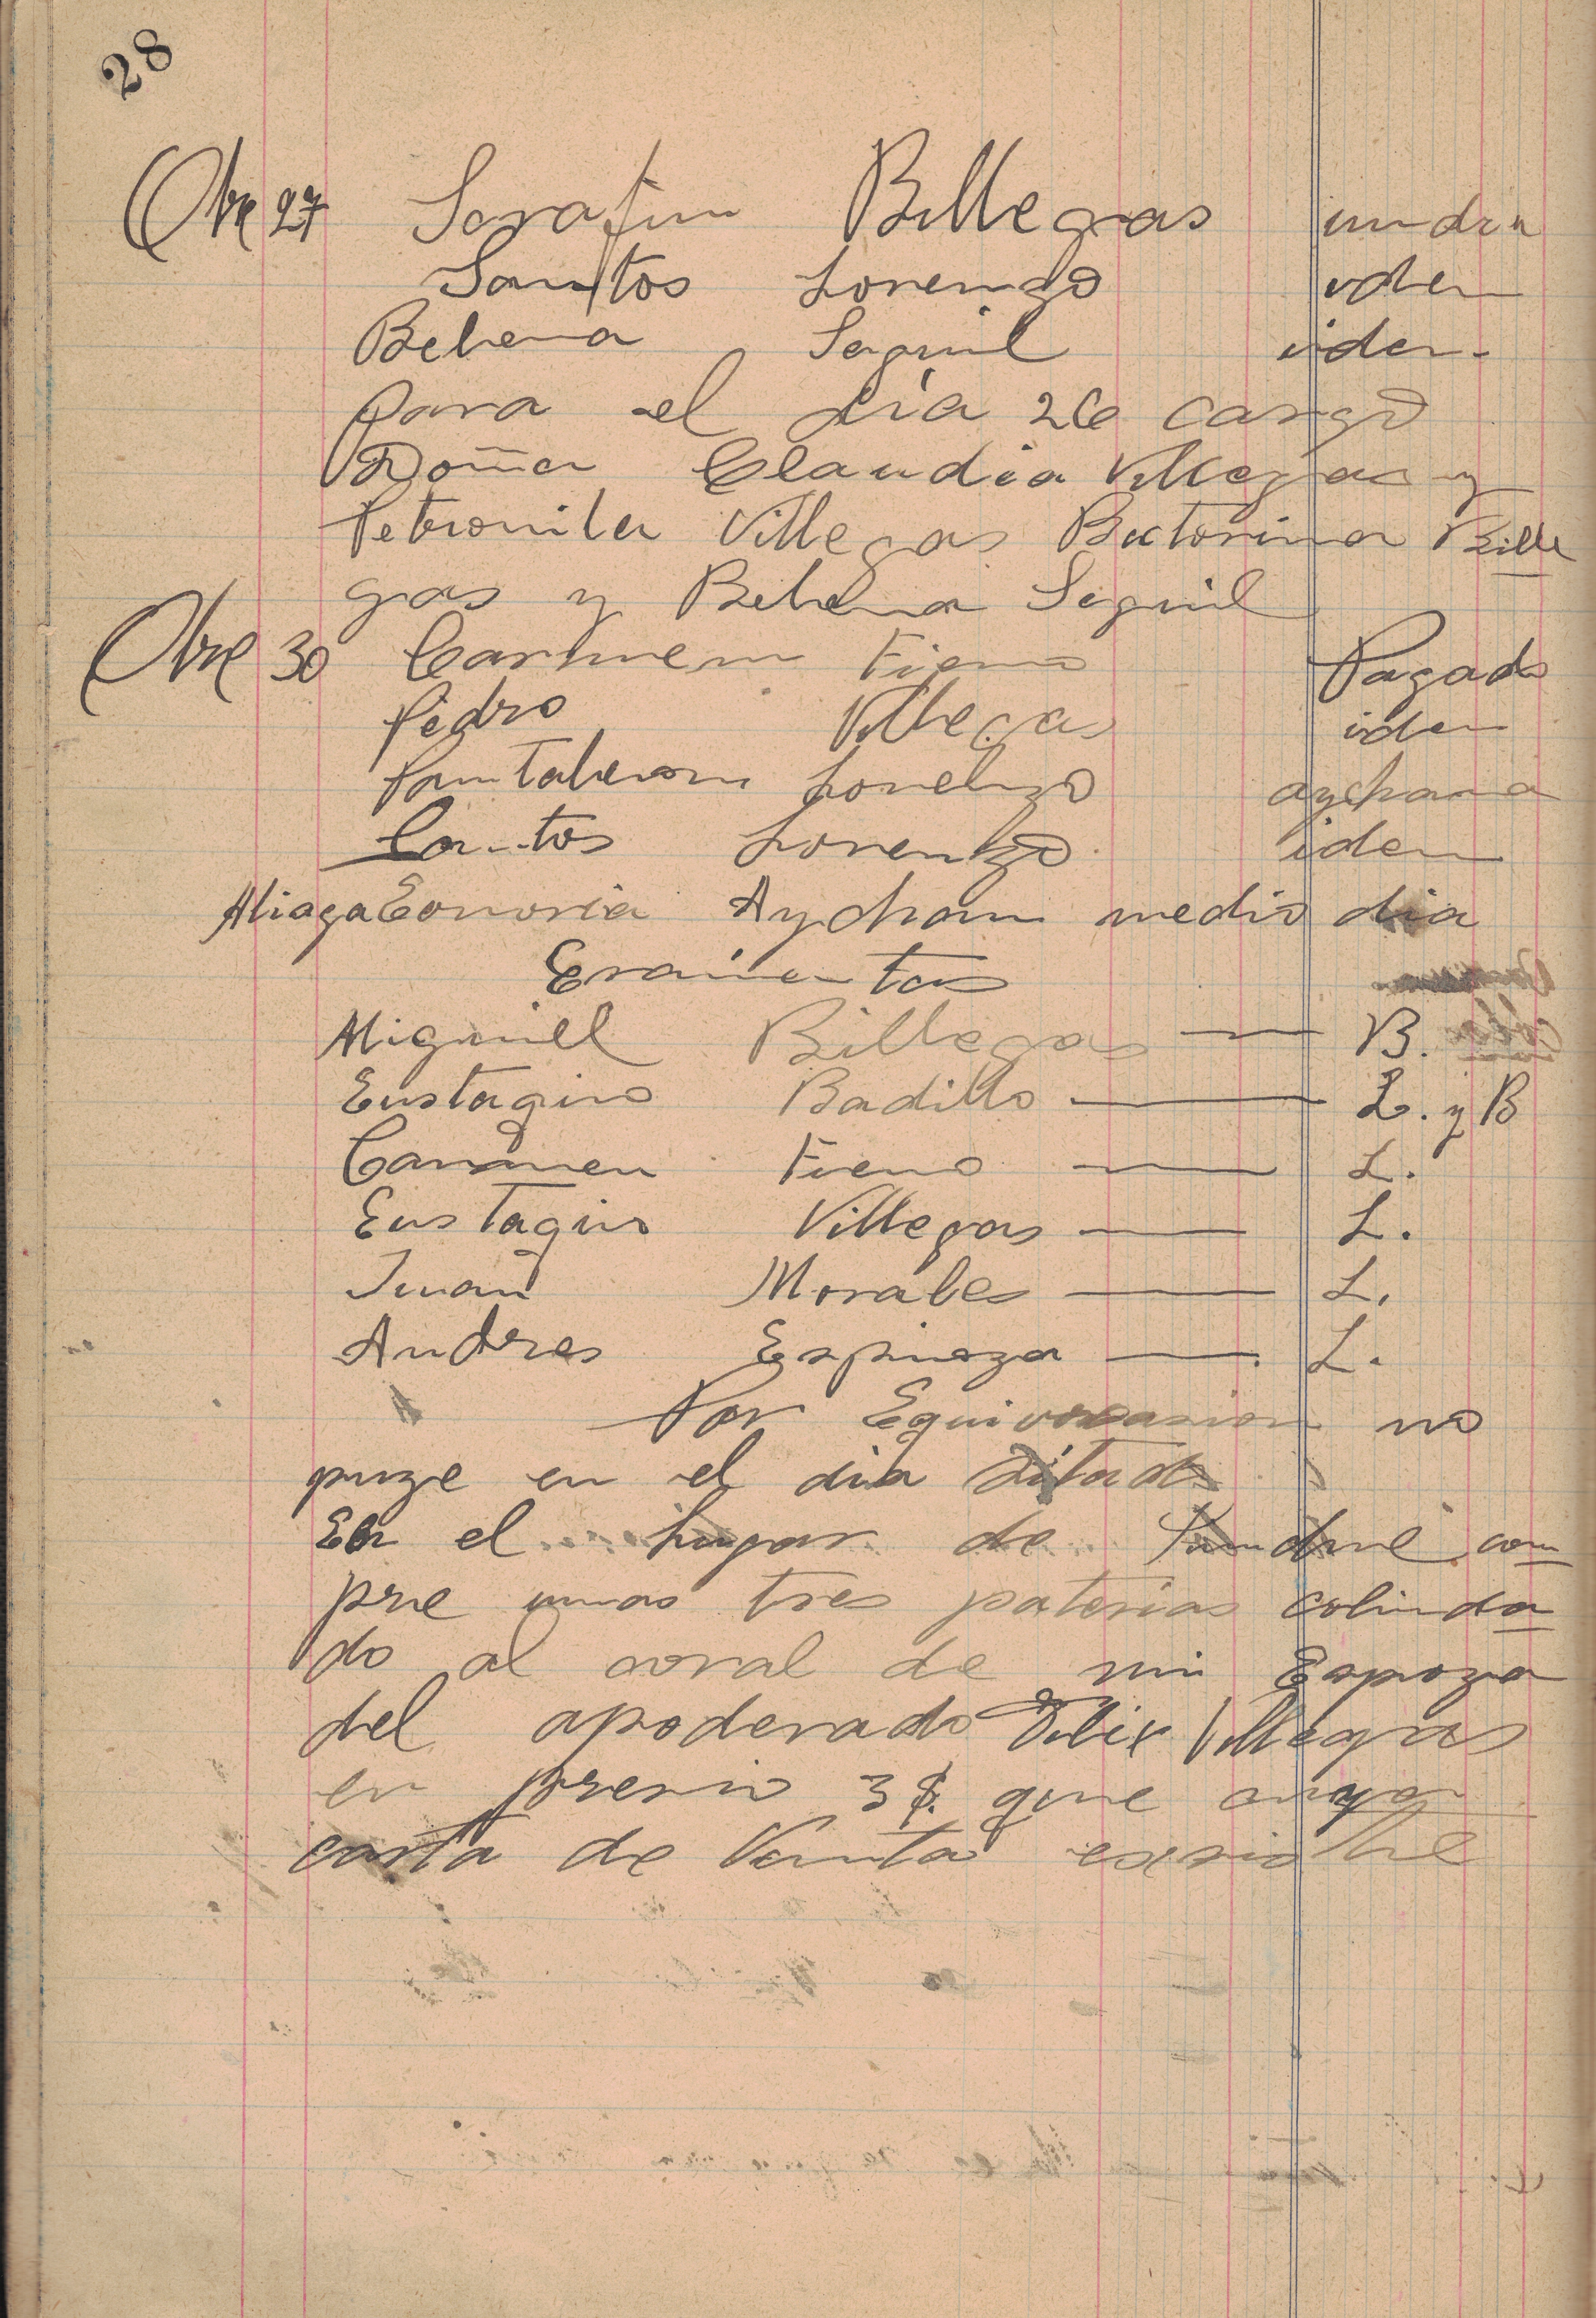 28
Obre 27 Sarafin Billegas un dia
Santos Lorenzo iden
Belena Seguil iden
para el dia 26 cargo
Doña Claudia Villegas y
Petronila Villegas Bictorina Bille
gas y Belena Seguil
Obre 30 Carmen Fieno Pagado
Pedro Villegas iden
Pantaleon Lorenzo aychana
Santos Lorenzo iden
Aliaga Eonoria Aychan medio dia
Eramentas
Miguiel Billegas — B.
Eustaqio Badillo — L. y B
Carmen Fieno — L.
Eustaqio Villegas — L.
Juan Morales — L.
Andres Espinoza — L.
Por Equivocasion no
puze en el dia sitado
En el lugar de com
pre unas tres paterias colinda
do al coral de mi Espoza
del apoderado Felix Villegas
en presio 3 $. que
carta de Venta